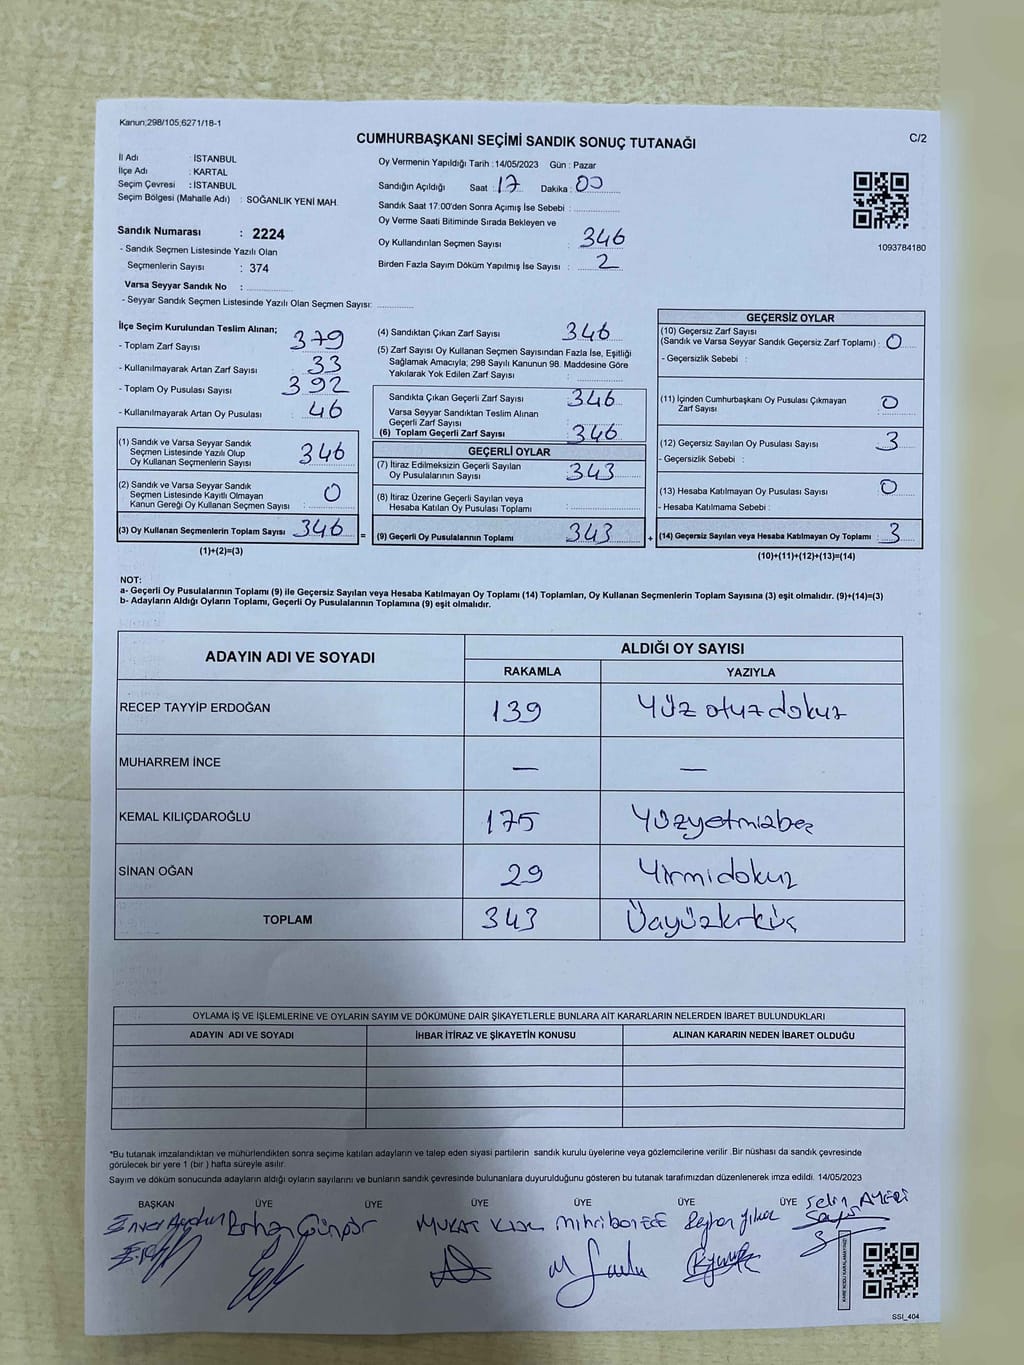 Kanun;298/105;6271/18-1
CUMHURBAŞKANI SEÇİMİ SANDIK SONUÇ TUTANAĞI
C/2
İl Adı : İSTANBUL
İlçe Adı : KARTAL
Seçim Çevresi : İSTANBUL
Seçim Bölgesi (Mahalle Adı) : SOĞANLIK YENİ MAH.
Sandık Numarası : 2224
- Sandık Seçmen Listesinde Yazılı Olan
Seçmenlerin Sayısı : 374
Varsa Seyyar Sandık No :
- Seyyar Sandık Seçmen Listesinde Yazılı Olan Seçmen Sayısı:
Oy Vermenin Yapıldığı Tarih : 14/05/2023 Gün : Pazar
Sandığın Açıldığı Saat : 17 Dakika : 00
Sandık Saat 17:00'den Sonra Açımış İse Sebebi :
Oy Verme Saati Bitiminde Sırada Bekleyen ve
Oy Kullandırılan Seçmen Sayısı : 346
Birden Fazla Sayım Döküm Yapılmış İse Sayısı : 2
1093784180
İlçe Seçim Kurulundan Teslim Alınan;
- Toplam Zarf Sayısı : 379
- Kullanılmayarak Artan Zarf Sayısı : 33
- Toplam Oy Pusulası Sayısı : 392
- Kullanılmayarak Artan Oy Pusulası : 46
(1) Sandık ve Varsa Seyyar Sandık
Seçmen Listesinde Yazılı Olup
Oy Kullanan Seçmenlerin Sayısı : 346
(2) Sandık ve Varsa Seyyar Sandık
Seçmen Listesinde Kayıtlı Olmayan
Kanun Gereği Oy Kullanan Seçmen Sayısı : 0
(3) Oy Kullanan Seçmenlerin Toplam Sayısı : 346
(1)+(2)=(3)
=
(4) Sandıktan Çıkan Zarf Sayısı : 346
(5) Zarf Sayısı Oy Kullanan Seçmen Sayısından Fazla İse, Eşitliği
Sağlamak Amacıyla; 298 Sayılı Kanunun 98. Maddesine Göre
Yakılarak Yok Edilen Zarf Sayısı :
Sandıkta Çıkan Geçerli Zarf Sayısı : 346
Varsa Seyyar Sandıktan Teslim Alınan
Geçerli Zarf Sayısı :
(6) Toplam Geçerli Zarf Sayısı : 346
GEÇERLİ OYLAR
(7) İtiraz Edilmeksizin Geçerli Sayılan
Oy Pusulalarının Sayısı : 343
(8) İtiraz Üzerine Geçerli Sayılan veya
Hesaba Katılan Oy Pusulası Toplamı :
(9) Geçerli Oy Pusulalarının Toplamı : 343
+
GEÇERSİZ OYLAR
(10) Geçersiz Zarf Sayısı
(Sandık ve Varsa Seyyar Sandık Geçersiz Zarf Toplamı) : 0
- Geçersizlik Sebebi :
(11) İçinden Cumhurbaşkanı Oy Pusulası Çıkmayan
Zarf Sayısı : 0
(12) Geçersiz Sayılan Oy Pusulası Sayısı : 3
- Geçersizlik Sebebi :
(13) Hesaba Katılmayan Oy Pusulası Sayısı : 0
- Hesaba Katılmama Sebebi :
(14) Geçersiz Sayılan veya Hesaba Katılmayan Oy Toplamı : 3
(10)+(11)+(12)+(13)=(14)
NOT:
a- Geçerli Oy Pusulalarının Toplamı (9) ile Geçersiz Sayılan veya Hesaba Katılmayan Oy Toplamı (14) Toplamları, Oy Kullanan Seçmenlerin Toplam Sayısına (3) eşit olmalıdır. (9)+(14)=(3)
b- Adayların Aldığı Oyların Toplamı, Geçerli Oy Pusulalarının Toplamına (9) eşit olmalıdır.
ADAYIN ADI VE SOYADI ALDIĞI OY SAYISI
RAKAMLA YAZIYLA
RECEP TAYYİP ERDOĞAN 139 Yüz otuz dokuz
MUHARREM İNCE — —
KEMAL KILIÇDAROĞLU 175 Yüzyetmişbeş
SİNAN OĞAN 29 Yirmidokuz
TOPLAM 343 Üçyüzkırküç
OYLAMA İŞ VE İŞLEMLERİNE VE OYLARIN SAYIM VE DÖKÜMÜNE DAİR ŞİKAYETLERLE BUNLARA AİT KARARLARIN NELERDEN İBARET BULUNDUKLARI
ADAYIN ADI VE SOYADI İHBAR İTİRAZ VE ŞİKAYETİN KONUSU ALINAN KARARIN NEDEN İBARET OLDUĞU
*Bu tutanak imzalandıktan ve mühürlendikten sonra seçime katılan adayların ve talep eden siyasi partilerin sandık kurulu üyelerine veya gözlemcilerine verilir .Bir nüshası da sandık çevresinde
görülecek bir yere 1 (bir ) hafta süreyle asılır.
Sayım ve döküm sonucunda adayların aldığı oyların sayılarını ve bunların sandık çevresinde bulunanlara duyurulduğunu gösteren bu tutanak tarafımızdan düzenlenerek imza edildi. 14/05/2023
BAŞKAN ÜYE ÜYE ÜYE ÜYE ÜYE ÜYE
Güngör MURAT Mihriban ECE Reyhan Selin
KARE KODU KARALAMAYINIZ!
SSI_404